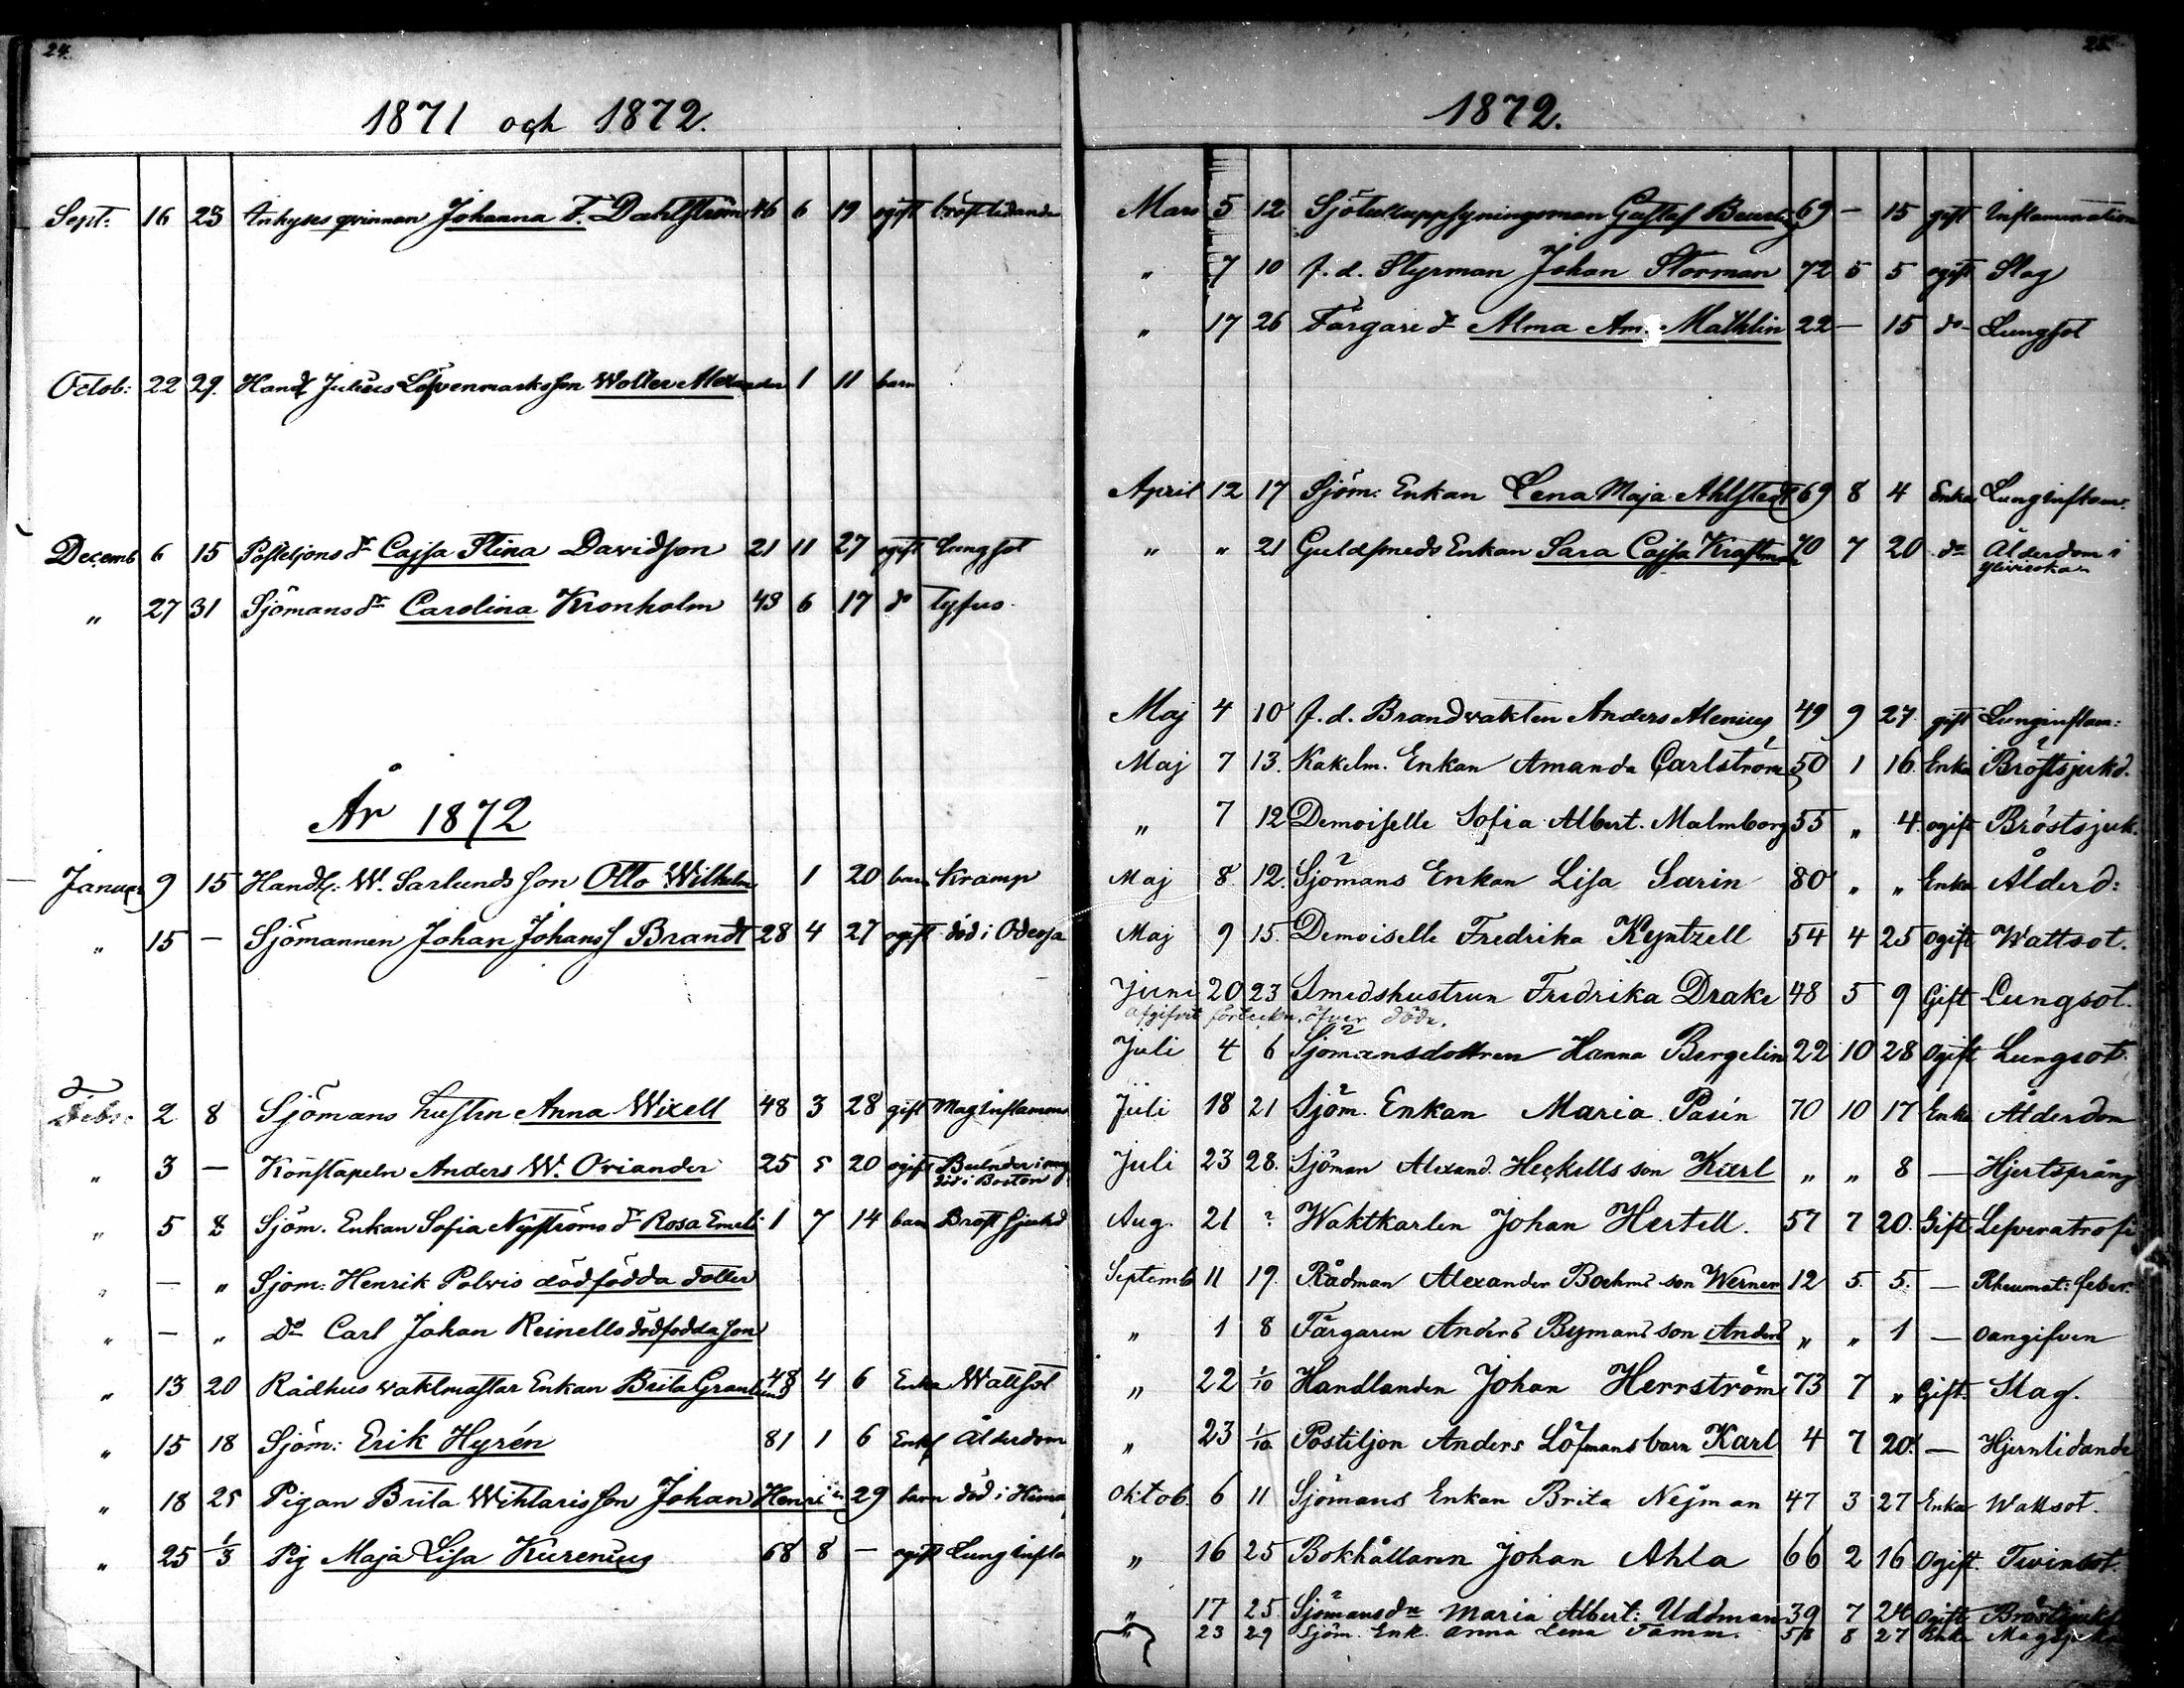 24.
1871 och 1872.
Sept: 16 23 Inhyses qvinnan Johanna F. Dahlström 46 6 19 ogift bröstlidande
Octob: 22 29. Handl Julius Löfvenmarks son Wolter Alexander 1 11 barn
Decemb 6 15 Postiljons dr Cajsa Stina Davidson 21 11 27 ogift Lungsot
" 27 31 Sjömans dr Carolina Kronholm 43 6 17 do Tyfus.
År 1872
Januar 9 15 Handl: W. Sarlunds son Otto Wilhelm 1 20 barn Kramp
" 15 — Sjömannen Johan Johanss Brandt 28 4 27 ogift död i Odessa
Febr: 2 8 Sjömans hustru Anna Wixell 48 3 28 gift Mag inflamm.
" 3 — Konstapeln Anders W. Oriander 25 5 20 ogift
död i Boston
" 5 8 Sjöm. Enkan Sofia Nyströms dr Rosa Emeli 1 7 14 barn Bröst sjukd
" — " Sjöm: Henrik Polvis dödfödda dotter
" — " Do Carl Johan Reinells dödfödda son
" 13 20 Rådhus vaktmästar Enkan Brita Granlund 48 4 6 Enka Wattsot
" 15 18 Sjöm: Erik Hyrén 81 1 6 Enkl Ålderdom
" 18 25 Pigan Brita Wihtaris son Johan Henrik 29 barn död i Hima
" 25 1/3 Pig Maja Lisa Kurenius 68 8 — ogift Lung infla
25.
1872.
Mars 5 12 Sjötulluppsyningsman Gustaf Beurling 69 — 15 gift Inflammation
" 7 10 f.d. Styrman Johan Storman 72 5 5 ogift Slag
" 17 26 Färgare dr Alma Am. Mathlin 22 — 15 do Lungsot
April 12 17 Sjöm: Enkan Lena Maja Ahlstedt 69 8 4 Enka Lunginflam.
" " 21 Guldsmeds Enkan Sara Cajsa Kraftman 70 7 20 do Ålderdom i
Ylivieska
Maj 4 10 f.d. Brandvakten Anders Alenius 49 9 27 gift Lunginflam:
Maj 7 13. Kakelm. Enkan Amanda Carlström 50 1 16. Enka Bröstsjukd.
" 7 12 Demoiselle Sofia Albert. Malmborg 55 " 4. ogift Bröstsjuk.
Maj 8. 12. Sjömans Enkan Lisa Sarin 80 " " Enka Ålderd:
Maj 9 15. Demoiselle Fredrika Kyntzell 54 4 25 Ogift Wattsot.
Juni 20 23 Smedshustrun Fredrika Drake 48 5 9 Gift Lungsot.
afgifvit förteckn. öfver döde.
Juli 4 6 Sjömansdottren Hanna Bergelin 22 10 28 Ogift Lungsot.
Juli 18 21 Sjöm. Enkan Maria Pasén 70 10 17 Enka Ålderdom
Juli 23 28. Sjöman Alexand. Heckells son Karl " " 8 — Hjertsprång
Aug. 21 ? Waktkarlen Johan Hertell. 57 7 20. Gift Lefveratrofi
Septemb 11 19. Rådman Alexander Boehms son Werner 12 5. 5. — Rheumat: feber.
" 1 8 Färgaren Anders Bymans son Anders " " 1 — oangifven
" 22 1/10 Handlanden Johan Herrström 73 7 " Gift. Slag.
" 23 1/10 Postiljon Anders Löfmans barn Karl 4 7 20. — Hjernlidande
Oktob. 6 11 Sjömans Enkan Brita Nejman 47 3 27 Enka Wattsot.
" 16 25 Bokhållaren Johan Ahla 66 2 16 Ogift. Tvinsot.
" 17 25. Sjömansdr Maria Albert: Uddman 39 7 24 Ogift Bröstsjukd
" 23 29 Sjöm. Enk. Anna Lena Tamm. 58 8 27 Enka